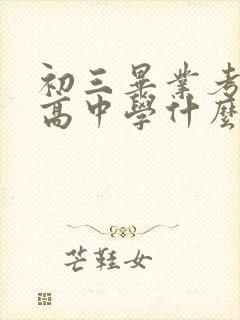 初三畢業考
高中學什麼
芒鞋女